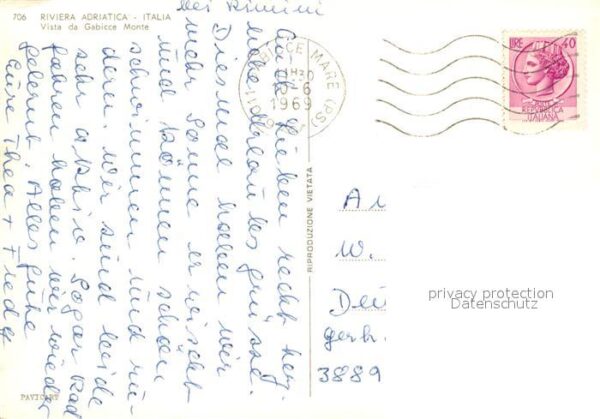 706 RIVIERA ADRIATICA - ITALIA
Vista da Gabicce Monte
bei Rimini
Euch Lieben recht herz.
liche Urlaubsgrüsse.
Diesmal haben wir
mehr Sonne erwischt
und können schon
schwimmen und ru-
dern. Wir sind beide
sehr aktiv. Sogar Rad
fahren haben wir wieder
gelernt. Alles Gute
Eure Thea + Friede
GABICCE MARE (PS)
30
10-6
1969
LIRE 40
REPVBBLICA
ITALIANA
RIPRODUZIONE VIETATA
An
W.
gerh.
3889
privacy protection
Datenschutz
PAVICART